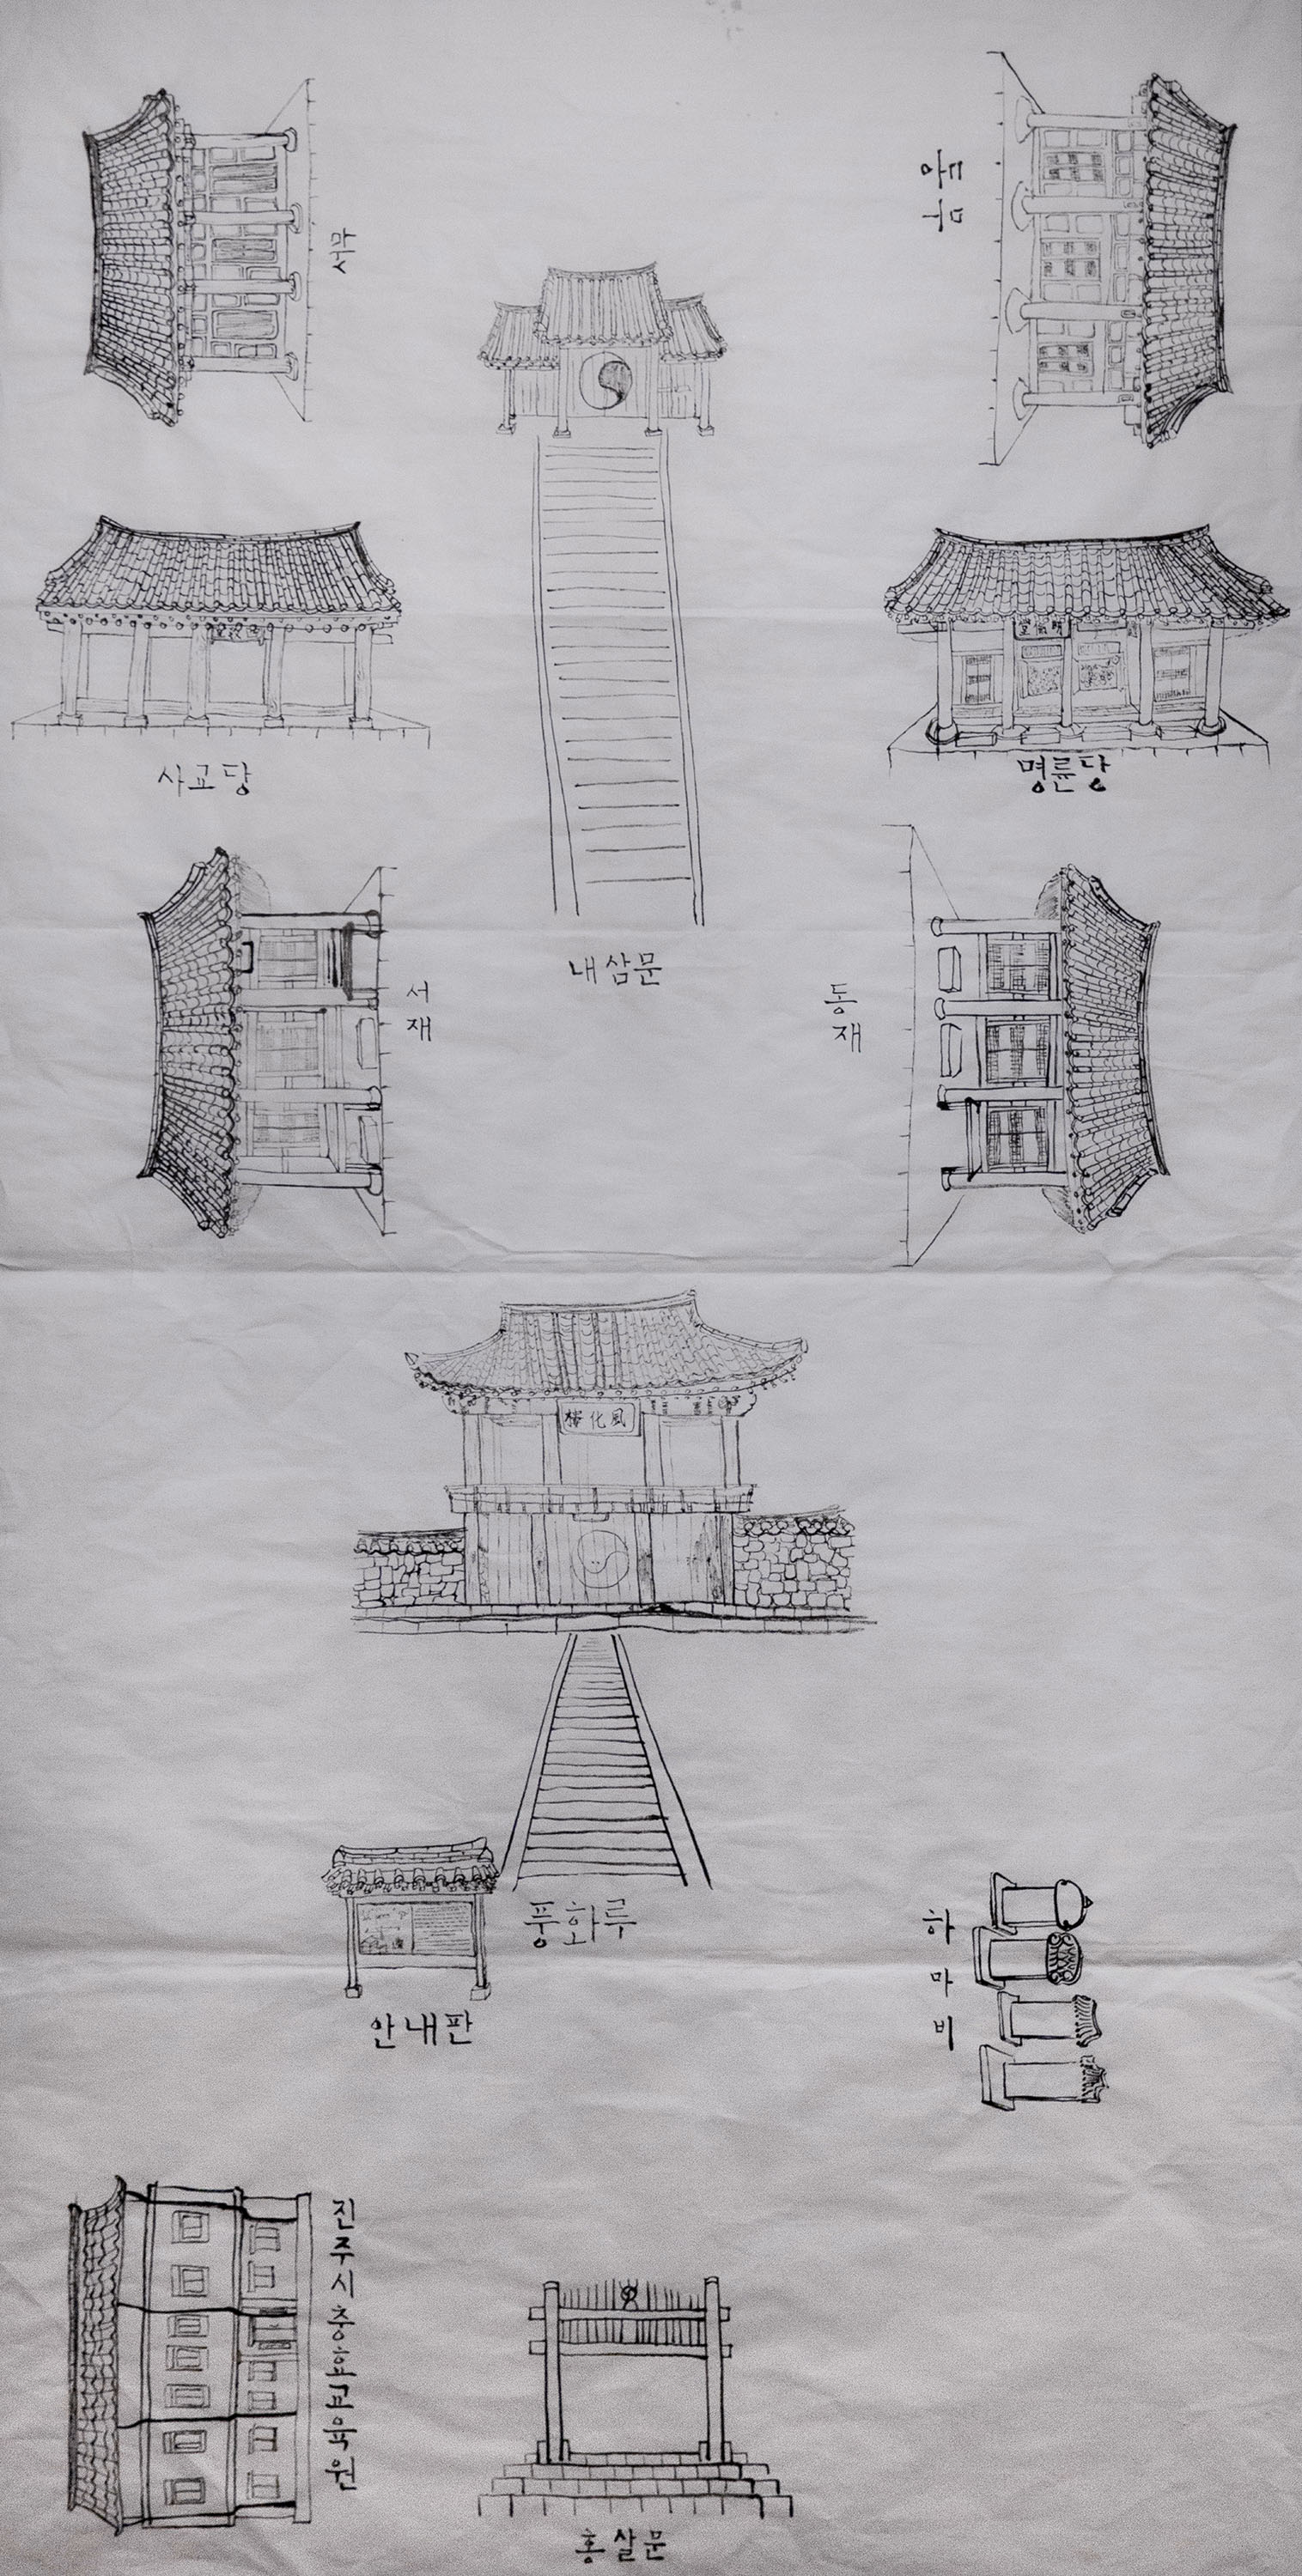 사교당
明倫堂
명륜당
내삼문
서재
동재
風化樓
풍화루
안내판
하마비
진주시충효교육원
홍살문